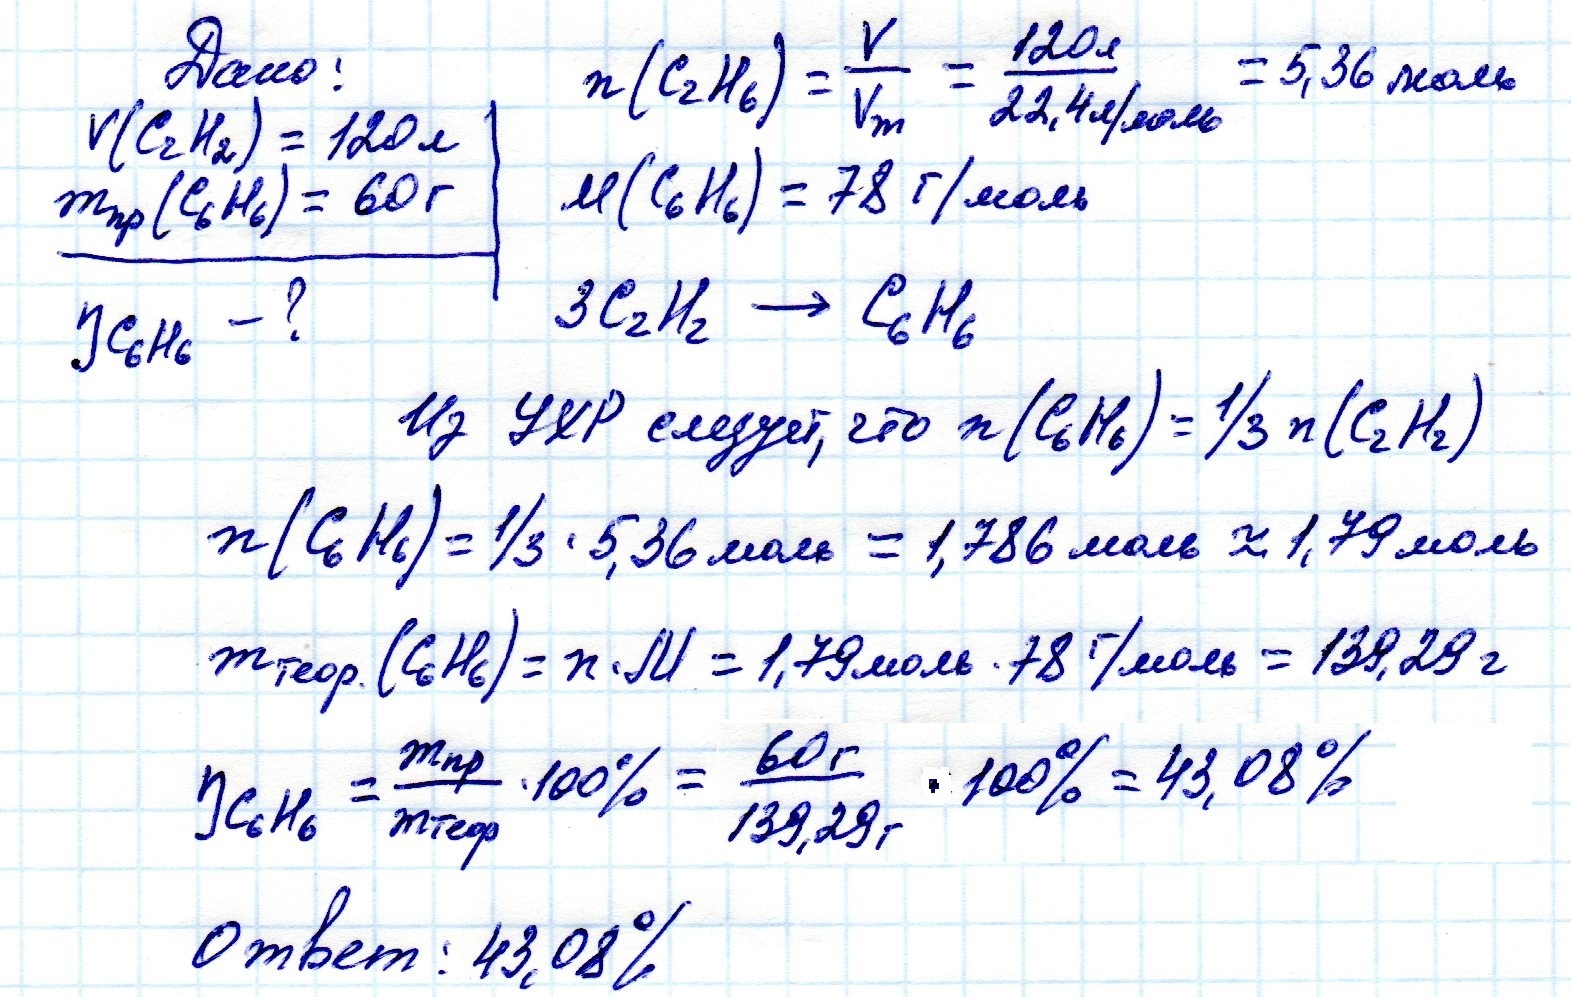 Дано:
V(C₂H₂) = 120л
mпр(C₆H₆) = 60г
ηC₆H₆ – ?
n(C₂H₆) = V/Vm = 120л/22,4л/моль = 5,36 моль
M(C₆H₆) = 78 г/моль
3C₂H₂ → C₆H₆
Из УХР следует, что n(C₆H₆) = 1/3 n(C₂H₂)
n(C₆H₆) = 1/3 · 5,36 моль = 1,786 моль ≈ 1,79 моль
mтеор.(C₆H₆) = n · M = 1,79 моль · 78 г/моль = 139,29 г
ηC₆H₆ = mпр/mтеор · 100% = 60г/139,29г · 100% = 43,08%
Ответ: 43,08%